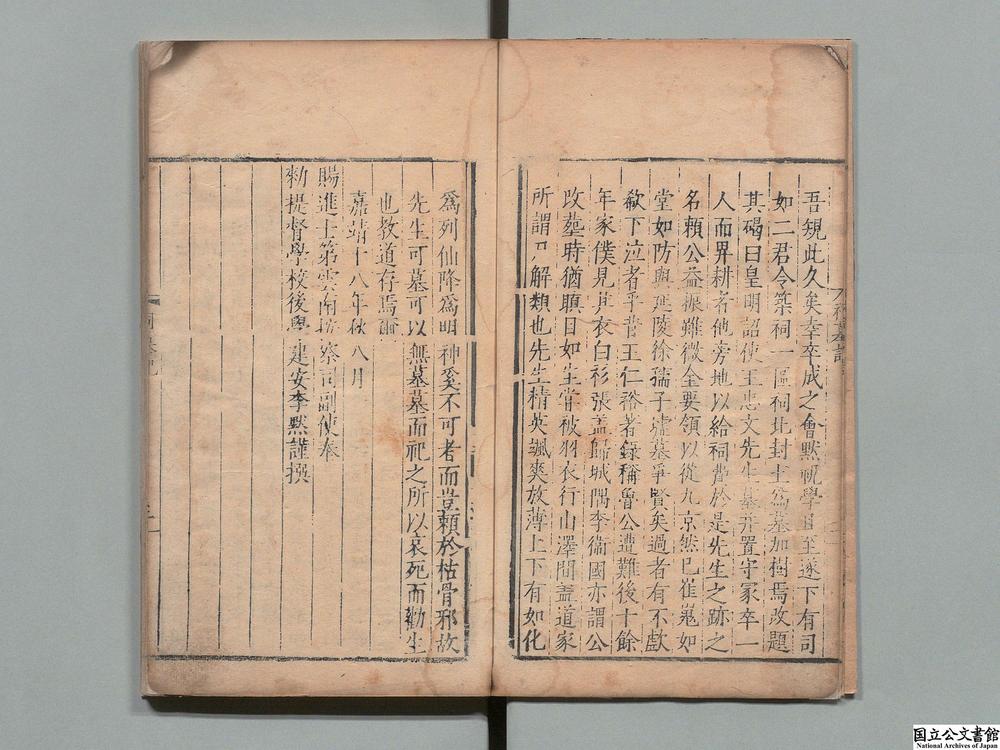 吾規此久矣幸卒成之會默視學且至遂下有司
如二君令築祠一區祠北封土為墓加樹焉改題
其碣曰皇明詔使王忠文先生墓并置守冢卒一
人而畀耕者他旁地以給祠費於是先生之跡之
名賴公益振雖微全要領以從九京然已崔嵬如
堂如防與延陵徐孺子墟墓爭賢矣過者有不歔
欷下泣者乎昔王仁裕著錄稱魯公遭難後十餘
年家僕見其衣白衫張盖歸城隅李衞國亦謂公
改葬時猶瞋目如生常被羽衣行山澤間盖道家
所謂尸解類也先生精英颯爽放薄上下有如化
為列仙降為明神奚不可者而豈賴於枯骨邪故
先生可墓可以無墓墓而祀之所以哀死而勸生
也教道存焉爾
嘉靖十八年秋八月
賜進士第雲南按察司副使奉
勑提督學校後學建安李默謹撰
祠墓記
国立公文書館
National Archives of Japan